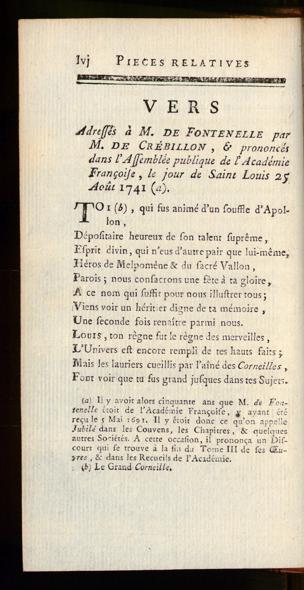 lvj PIECES RELATIVES
VERS
Adreſſés à M. DE FONTENELLE par
M. DE CRÉBILLON, & prononcés
dans l'Aſſemblée publique de l'Académie
Françoiſe, le jour de Saint Louis 25
Août 1741 (a).
TOI (b), qui fus animé d'un ſouffle d'Apol-
lon,
Dépoſitaire heureux de ſon talent ſuprême,
Eſprit divin, qui n'eus d'autre pair que lui-même,
Héros de Melpomène & du ſacré Vallon,
Parois; nous conſacrons une fête à ta gloire,
A ce nom qui ſuffit pour nous illuſtrer tous;
Viens voir un héritier digne de ta mémoire,
Une ſeconde fois renaître parmi nous.
LOUIS, ton règne fut le règne des merveilles,
L'Univers eſt encore rempli de tes hauts faits;
Mais les lauriers cueillis par l'aîné des Corneilles,
Font voir que tu fus grand juſques dans tes Sujets.
(a) Il y avoit alors cinquante ans que M. de Fon-
tenelle étoit de l'Académie Françoiſe, y ayant été
reçu le 5 Mai 1691. Il y étoit donc ce qu'on appelle
Jubilé dans les Couvens, les Chapitres, & quelques
autres Sociétés. A cette occaſion, il prononça un Diſ-
cours qui ſe trouve à la fin du Tome III de ſes Œu-
vres, & dans les Recueils de l'Académie.
(b) Le Grand Corneille.